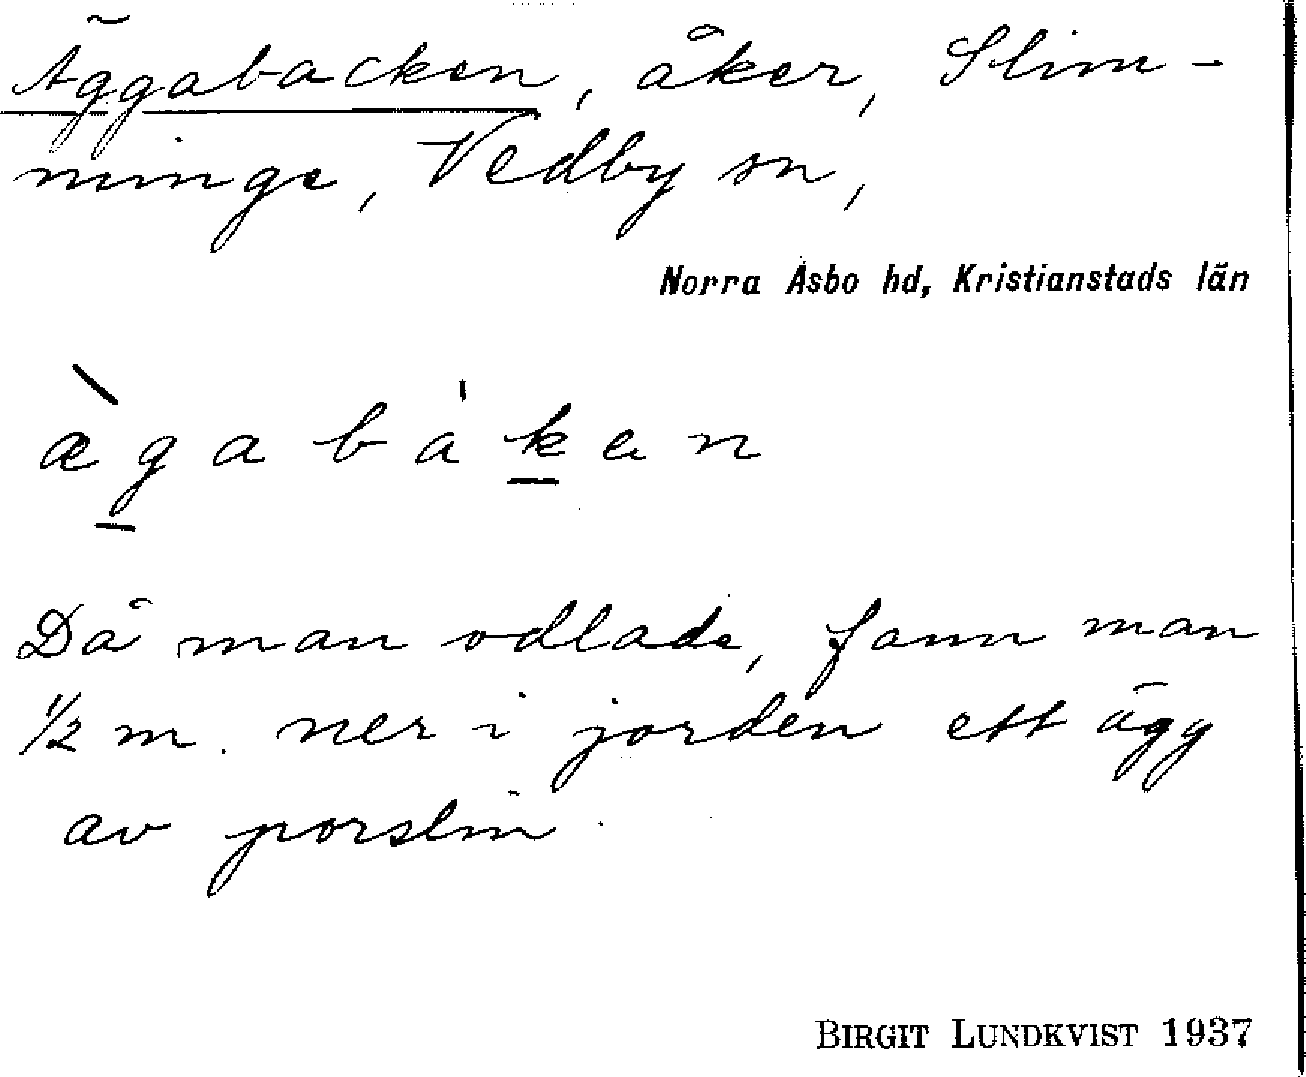 Äggabacken, åker, Slim-
minge, Vedby sn,
Norra Åsbo hd, Kristianstads län
æ̀g̲abák̲en
Då man odlade, fann man
1/2 m. ner i jorden ett ägg
av porslin.
BIRGIT LUNDKVIST 1937